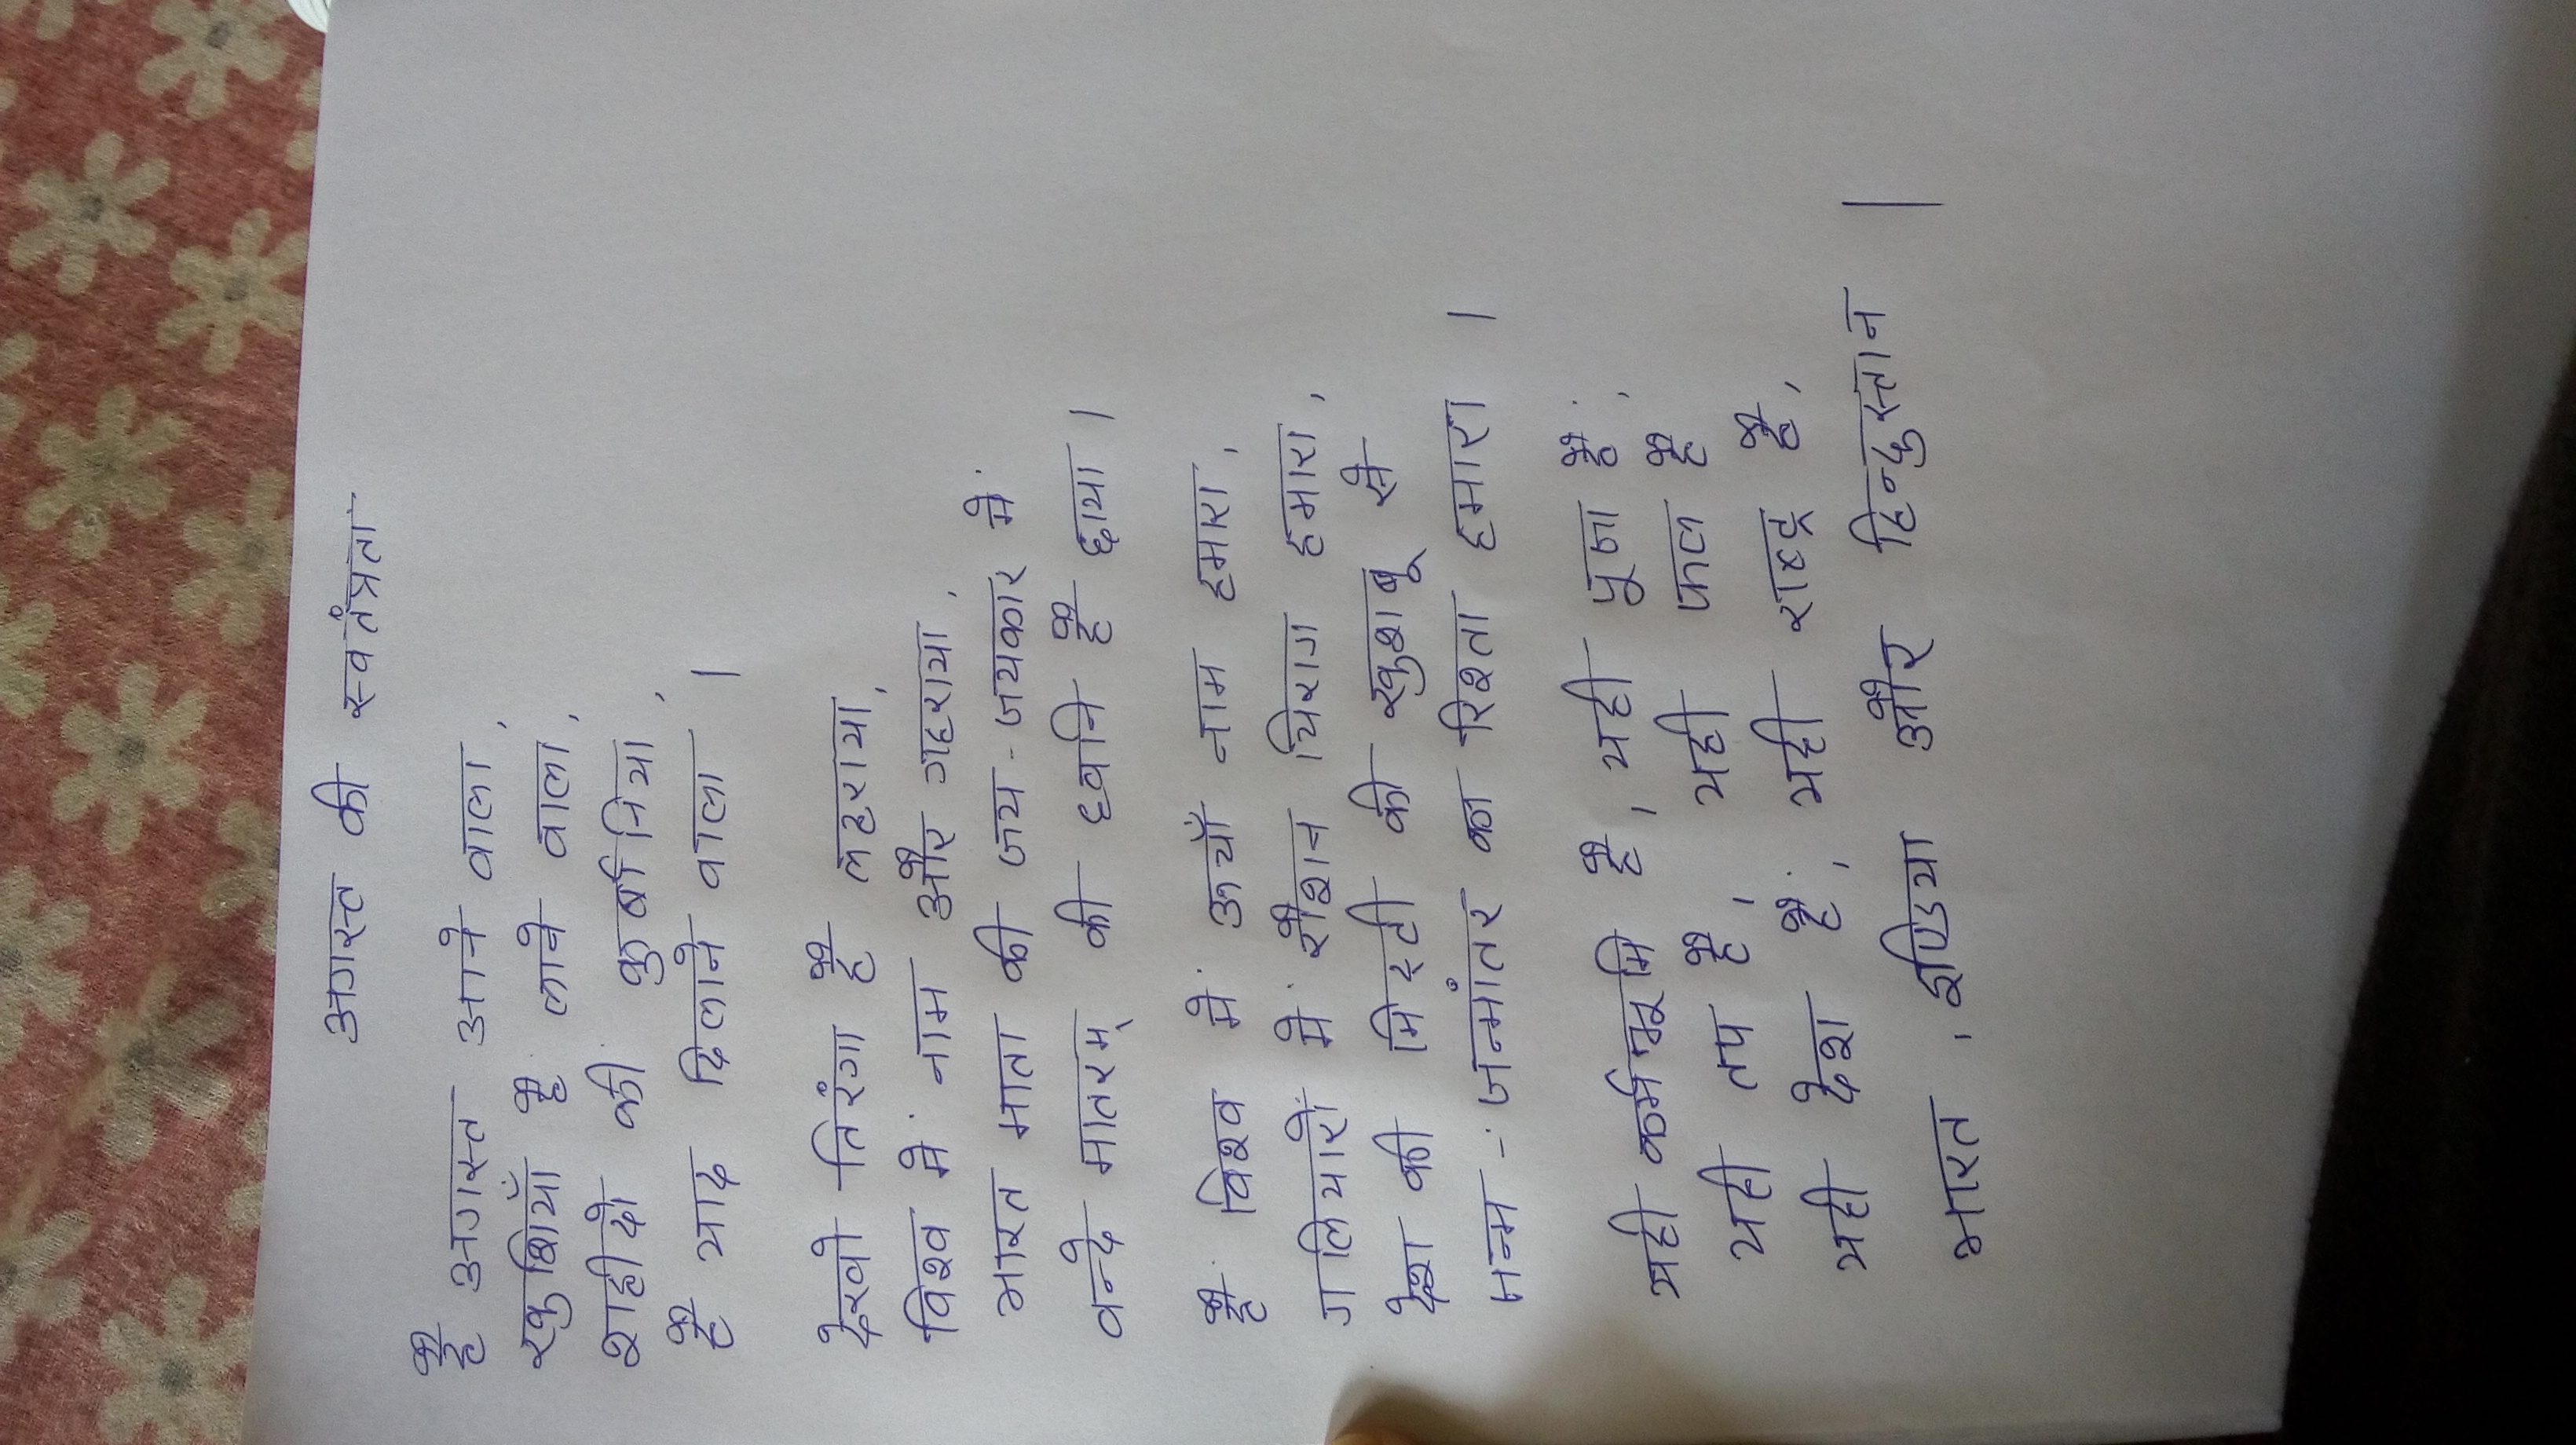 अगस्त की स्वतंत्रता
है अगस्त आने वाला,
खुशियाँ है लाने वाला,
शहीदो की कुर्बानिया,
है याद दिलाने वाला ।
देखो तिरंगा है लहराया,
विश्व में नाम और गहराया,
भारत माता की जय-जयकार में
वन्दे मातरम् की ध्वनि है छाया ।
है विश्व में ऊचाँ नाम हमारा,
गलियारों में रौशन चिराग हमारा,
देश की मिट्टी की खुशबू से
जन्म - जन्मांतर का रिश्ता हमारा ।
यही कर्मभूमि है, यही पूजा है,
यही तप है, यही फल है
यही देश है, यही राष्ट्र है,
भारत, इण्डिया और हिन्दुस्तान ।